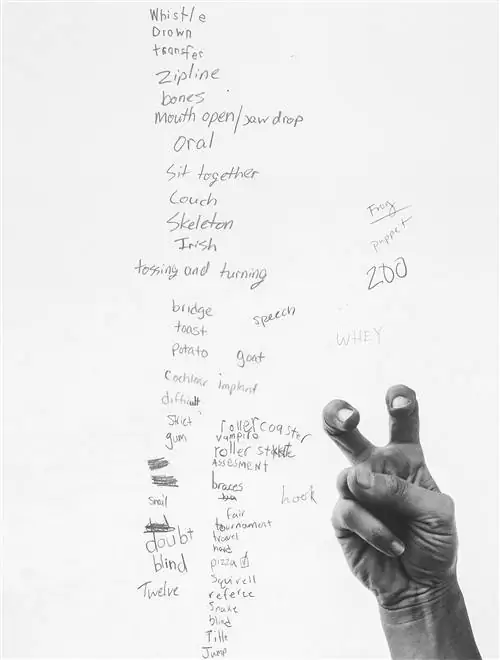 Whistle
Drown
transfer
Zipline
bones
Mouth open/Jaw drop
Oral
Sit together
Couch
Skeleton
Irish
tossing and turning
Frog
puppet
ZOO
bridge
speech
toast
WHEY
potato
goat
Cochlear implant
difficult
Skirt
roller coaster
gum
vampire
roller skate
ASSESMENT
braces
hook
snail
fair
tournament
doubt
travel
hard
blind
pizza
Squirell
Twelve
referee
Snake
blind
Title
Jump